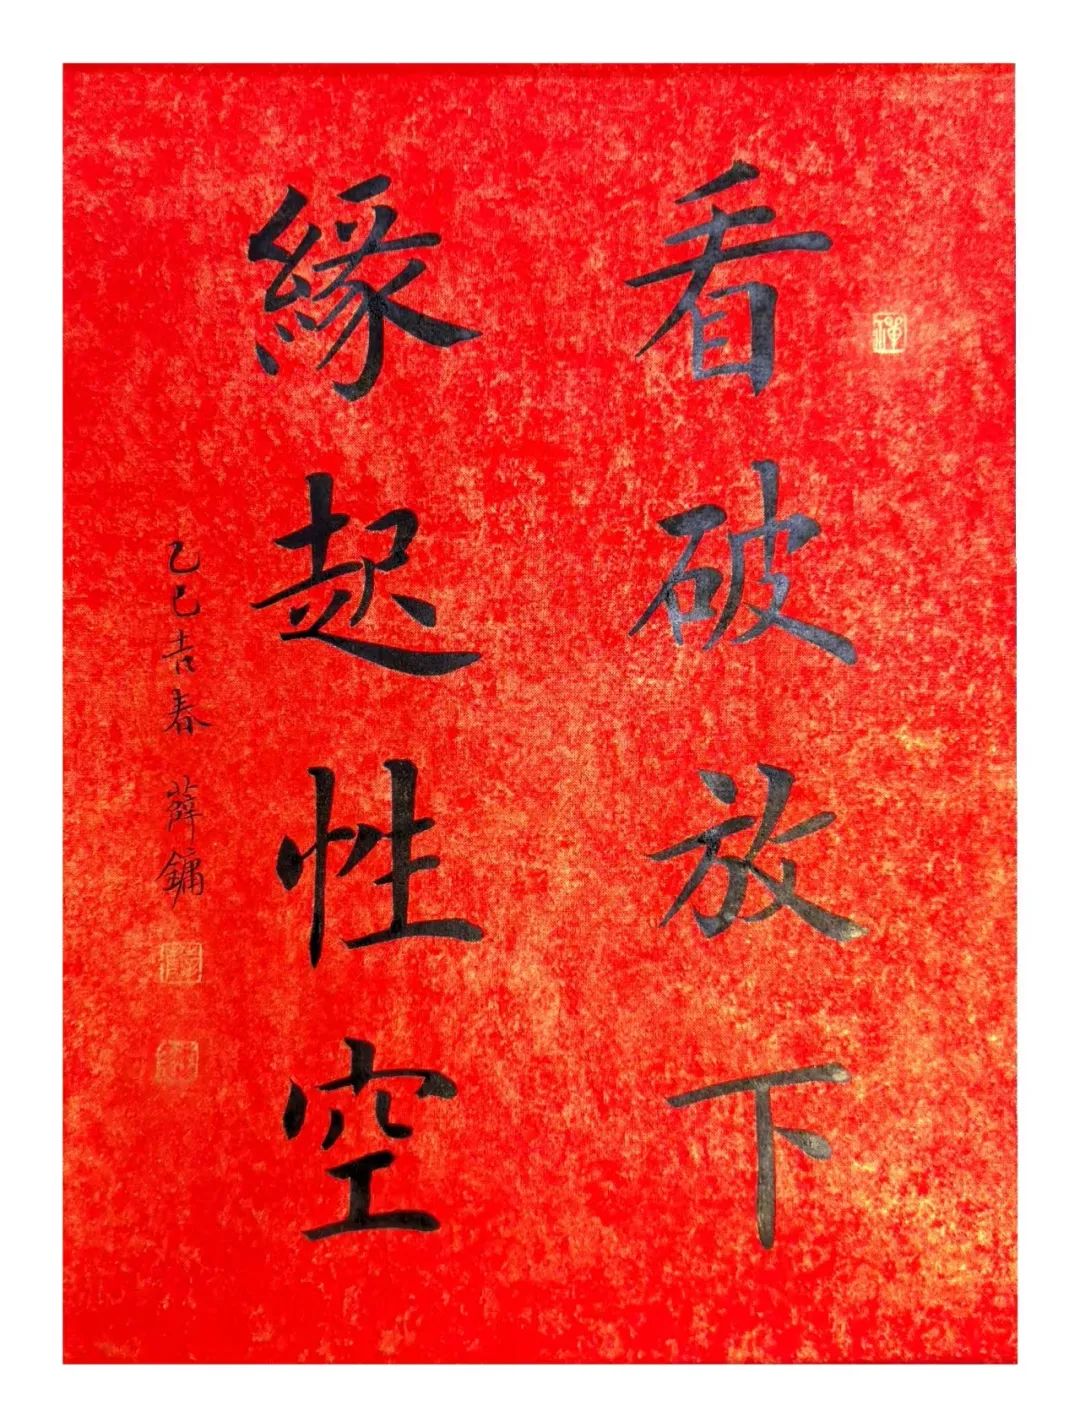 看破放下
緣起性空
乙巳吉春 薛鏞